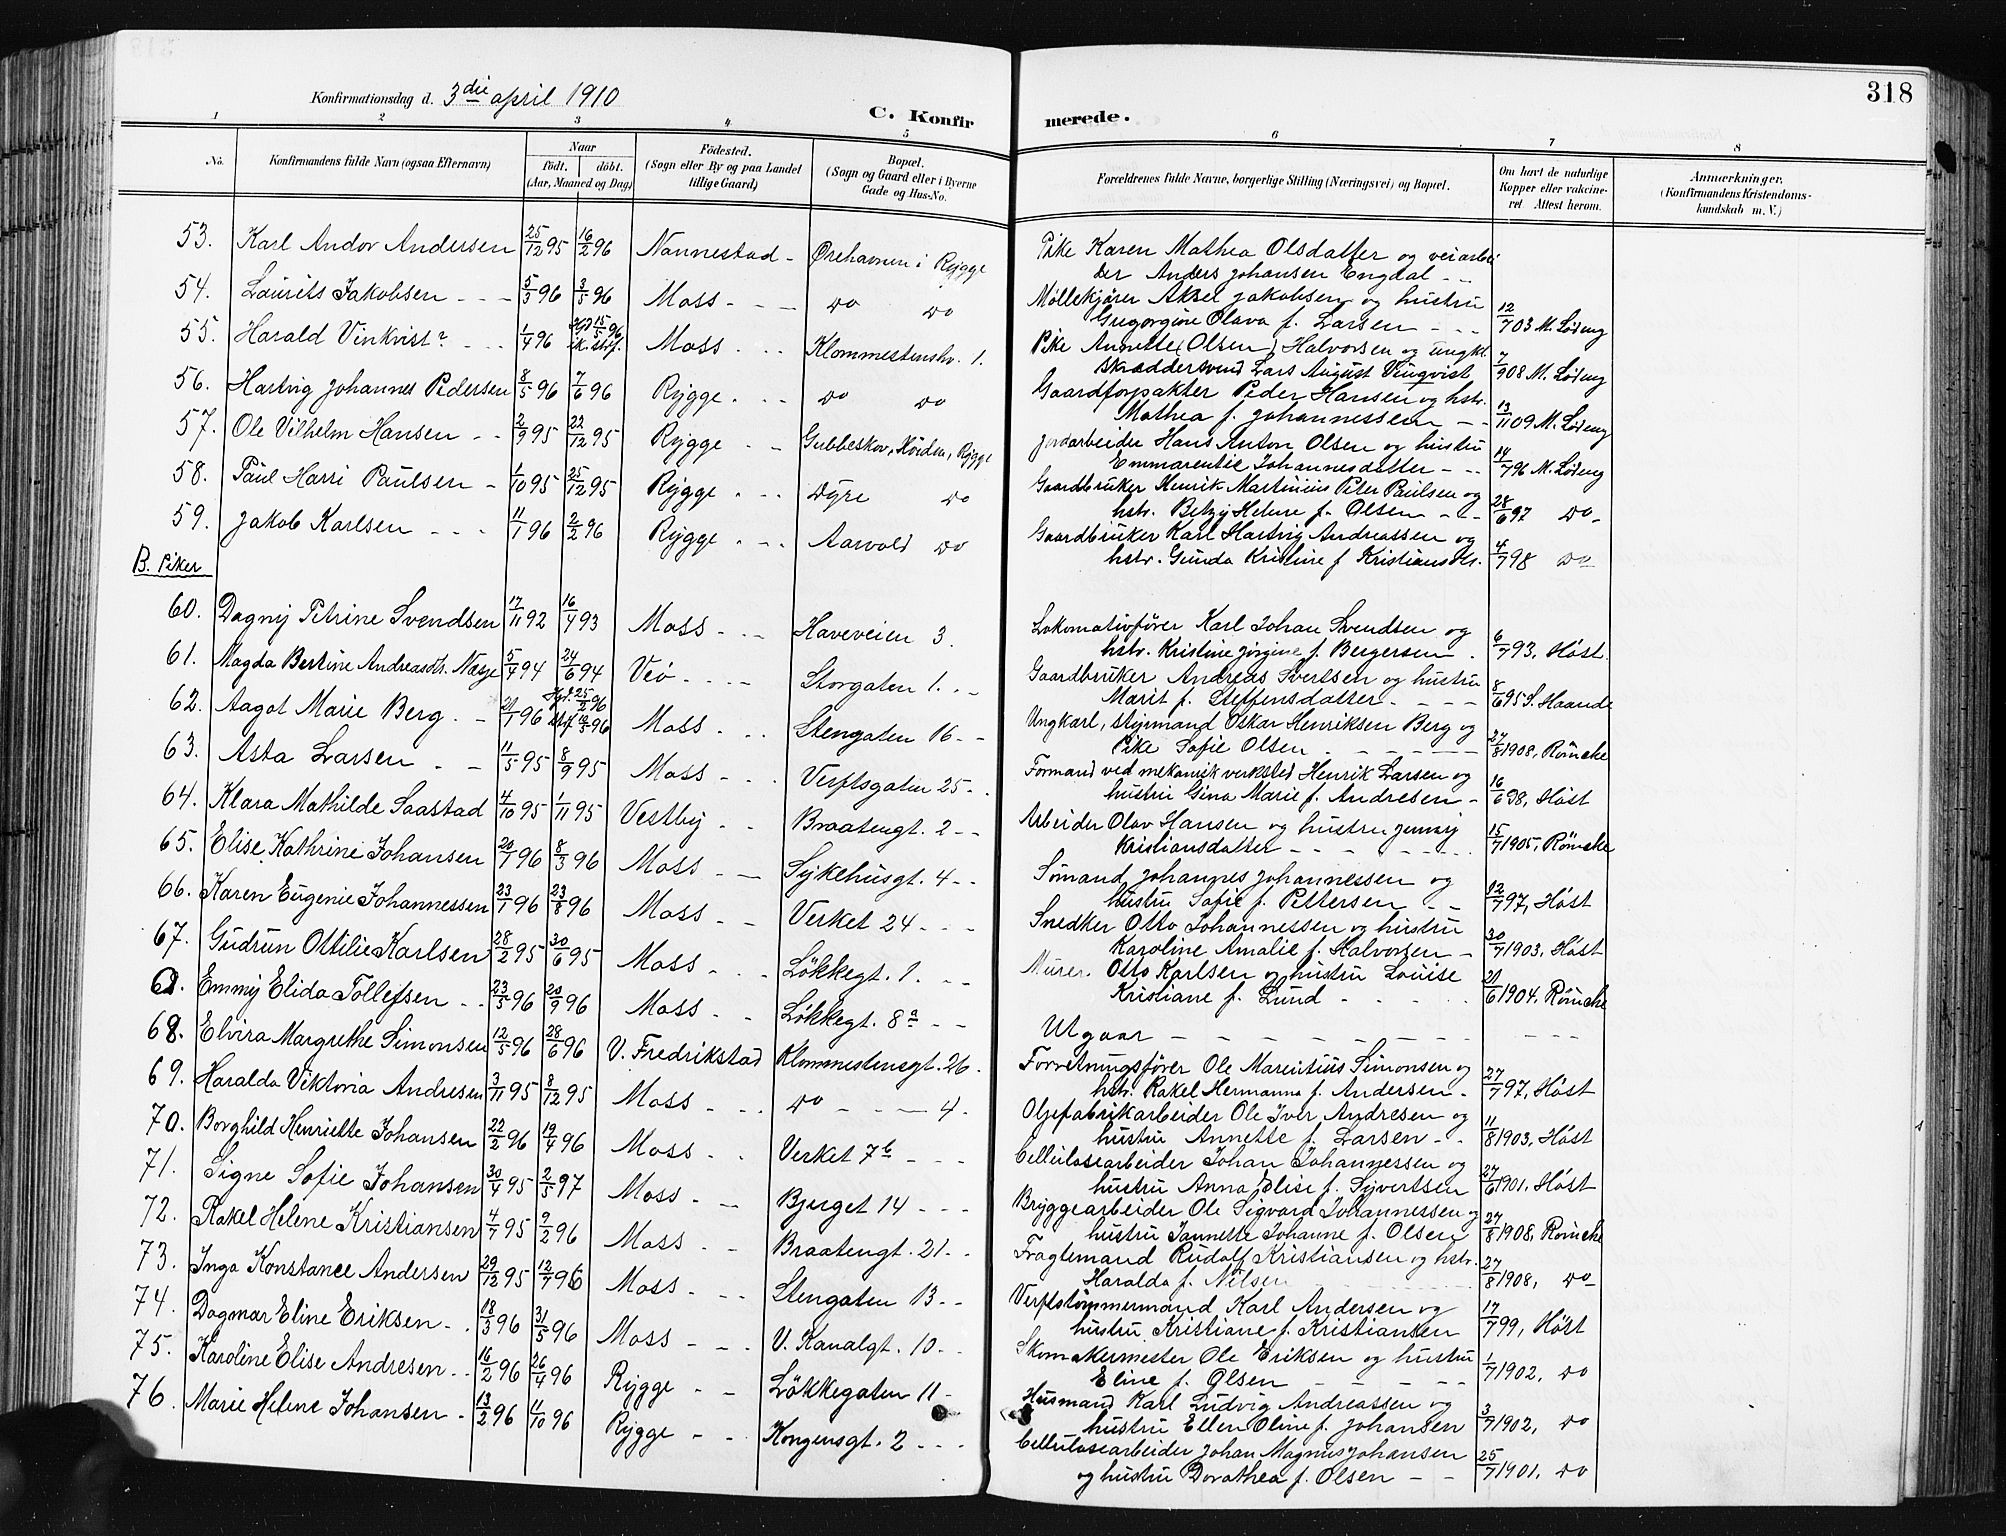 318
Konfirmationsdag d. 3die april 1910
C. Konfirmerede.
1 2 3 4 5 6 7 8
No. Konfirmandens fulde Navn (ogsaa Efternavn) Naar født. døbt. (Aar, Maaned og Dag) Fødested. (Sogn eller By og paa Landet tillige Gaard) Bopæl. (Sogn og Gaard eller i Byerne Gade og Hus-No. Forældrenes fulde Navne, borgerlige Stilling (Næringsvei) og Bopæl. Om havt de naturlige Kopper eller vakcineret. Attest herom. Anmærkninger. (Konfirmandens Kristendomskundskab m. V.)
53. Karl Andor Andersen 25/12 95 16/2 96 Nannestad - Ørehavnen i Rygge Pike Karen Mathea Olsdatter og veiarbeider Anders Johansen Engdal - -
54. Laurits Jakobsen - - - 5/3 96 3/5 96 Moss - - - do do Møllekjører Aksel Jakobsen og hustru Gregorgine Olava f. Larsen - - - 12/7 03 M. Lødeng
55. Harald Vinkvist? - - - 1/4 96 15/5 96 Moss - - - Klommestenshv. 1. Pike Annette (Olsen) Halvorsen og ungkl. skræddersvend Lars August Vinqvist 7/9 08 M. Lødeng
56. Hartvig Johannes Pedersen 8/5 96 7/6 96 Rygge - - - do do Gaardforpakter Peder Hansen og hstr. Mathea f. Johannessen - - 13/11 09 M. Lødeng
57. Ole Vilhelm Hansen - - 2/9 95 22/12 95 Rygge - - Gubbeskov, Rygge Jordarbeider Hans Anton Olsen og hustru Emmarentie Johannesdatter - - - 14/7 96 M. Lødeng
58. Paul Harri Paulsen - 1/10 95 25/12 95 Rygge - - - Dyre do Gaardbruker Henrik Martinius Peter Paulsen og hstr. Betzy Helene f. Olsen - - - 28/6 97 do -
59. Jakob Karlsen - - - 11/1 96 2/2 96 Rygge - - - Aarvold do Gaardbruker Karl Hartvig Andreassen og hstr. Gunda Kristine f Kristiansdtr. 4/7 98 do
B. Piker
60. Dagny Petrine Svendsen 17/11 92 16/4 93 Moss - - - Haveveien 3 Lokomativfører Karl Johan Svendsen og hstr. Kristine Jørgine f. Bergersen. 6/7 93, Høst.
61. Magda Bertine Andreasdt. Næsje 5/4 94 24/6 94 Veø - - - - Storgaten 1. - - Gaardbruker Andreas Svertsen og hustru Marit f. Steffensdatter. - - - - 8/6 95 S. Haande
62. Aagot Marie Berg. - 21/1 96 Hjd. 25/2 96 Moss - - - Stengaten 16 - - Ungkarl, styrmand Oskar Henriksen Berg og Pike Sofie Olsen - - - - - - 27/8 1908, Römcke
63. Asta Larsen - - 11/5 95 8/9 95 Moss - - - Verftsgaten 25 - - Formand ved mekanik verksted Henrik Larsen og hustru Gina Marie f. Andresen - 16/6 98, Høst
64. Klara Mathilde Saastad 4/10 95 1/11 95 Vestby - - Braatengt. 2 - - Arbeider Olav Hansen og hustru Jenny Kristiansdatter - - - - - - - 15/7 1905, Römcke
65. Elise Kathrine Johansen 20/1 96 8/3 96 Moss - - Sykehusgt. 4 - - Sømand Johannes Johannessen og hustru Sofie f. Pettersen - - 12/7 97, Høst
66. Karen Eugenie Johannessen 23/1 96 23/8 96 Moss - - Verket 24 - - - Snedker Otto Johannessen og hustru Karoline Amalie f. Halvorsen - 30/7 1903, Høst
67. Gudrun Ottilie Karlsen 28/2 95 30/6 95 Moss - - - Løkkegt. 1. - - Murer. Otto Karlsen og hustru Louise Kristiane f. Lund - - - - - 21/6 1904. Römcke
Emmy Elida Tollefsen - - 23/5 96 20/9 96 Moss - - Løkkegt. 8 a - - Utgaar - - - - - - - - - - -
68. Elvira Margrethe Simonsen 12/5 96 28/6 96 V. Fredrikstad Klommestensgt. 26. Forretningsfører Ole Marentius Simonsen og hstr. Rakel Hermanna f. Andersen. 27/7 97, Høst
69. Haralda Viktoria Andresen 3/11 95 8/12 95 Moss - - - do - - - 4. Oljefabrikarbeider Ole Iver Andresen og hustru Annette f. Larsen - - 11/8 1903, Høst
70. Borghild Henriette Johansen 22/2 96 19/4 96 Moss - - Verket 7 b - - - Cellulosearbeider Johan Johannessen og hustru Anna Elise f. Syvertsen 27/6 1901, Høst
71. Signe Sofie Johansen 30/4 95 2/5 97 Moss - - Bjerget 14 - - - Bryggearbeider Ole Sigvard Johannessen og hustru Jannette Johanne f. Olsen 27/8 1908, Römcke
72. Rakel Helene Kristiansen 4/7 95 9/2 96 Moss - - Braatengt. 21 - - Fragtemand Rudolf Kristiansen og hstr. Haralda f. Nilsen 27/8 1908, do -
73. Inga Konstance Andersen 29/12 95 12/7 96 Moss - - - Stengaten 13 - - Verftstømmermand Karl Andersen og hustru Kristiane f. Kristiansen 17/7 99, Høst
74. Dagmar Eline Eriksen - - 18/3 96 31/5 96 Moss - - - V. Kanalgt. 10 - - Skomakermester Ole Eriksen og hustru Eline f. Olsen - - - - - 1/7 1902, do
75. Karoline Elise Andresen - - 16/2 96 26/4 96 Rygge - - Løkkegaten 11 - Husmand Karl Ludvig Andreassen og hustru Ellen Oline f. Johansen 3/7 1902, do
76. Marie Helene Johansen - 13/2 96 11/10 96 Rygge - - Kongensgt. 2 - - - Cellulosearbeider Johan Magnus Johansen og hustru Dorathea f. Olsen - - 25/7 1901, do